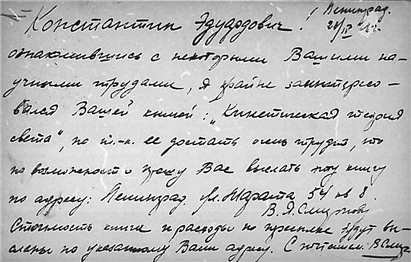 Ленинград.
Константин Эдуардович!
ознакомившись с некоторыми Вашими на-
учными трудами, я крайне заинтересо-
вался Вашей книгой: "Кинетическая теория
света", но т.-к. ее достать очень трудно, то
по возможности прошу Вас выслать эту книгу
по адресу: Ленинград. ул. Марата 54 кв 8.
В. Я.
Стоимость книги и расходы по пересылке будут вы-
сланы по указанному Вами адресу. С почтением